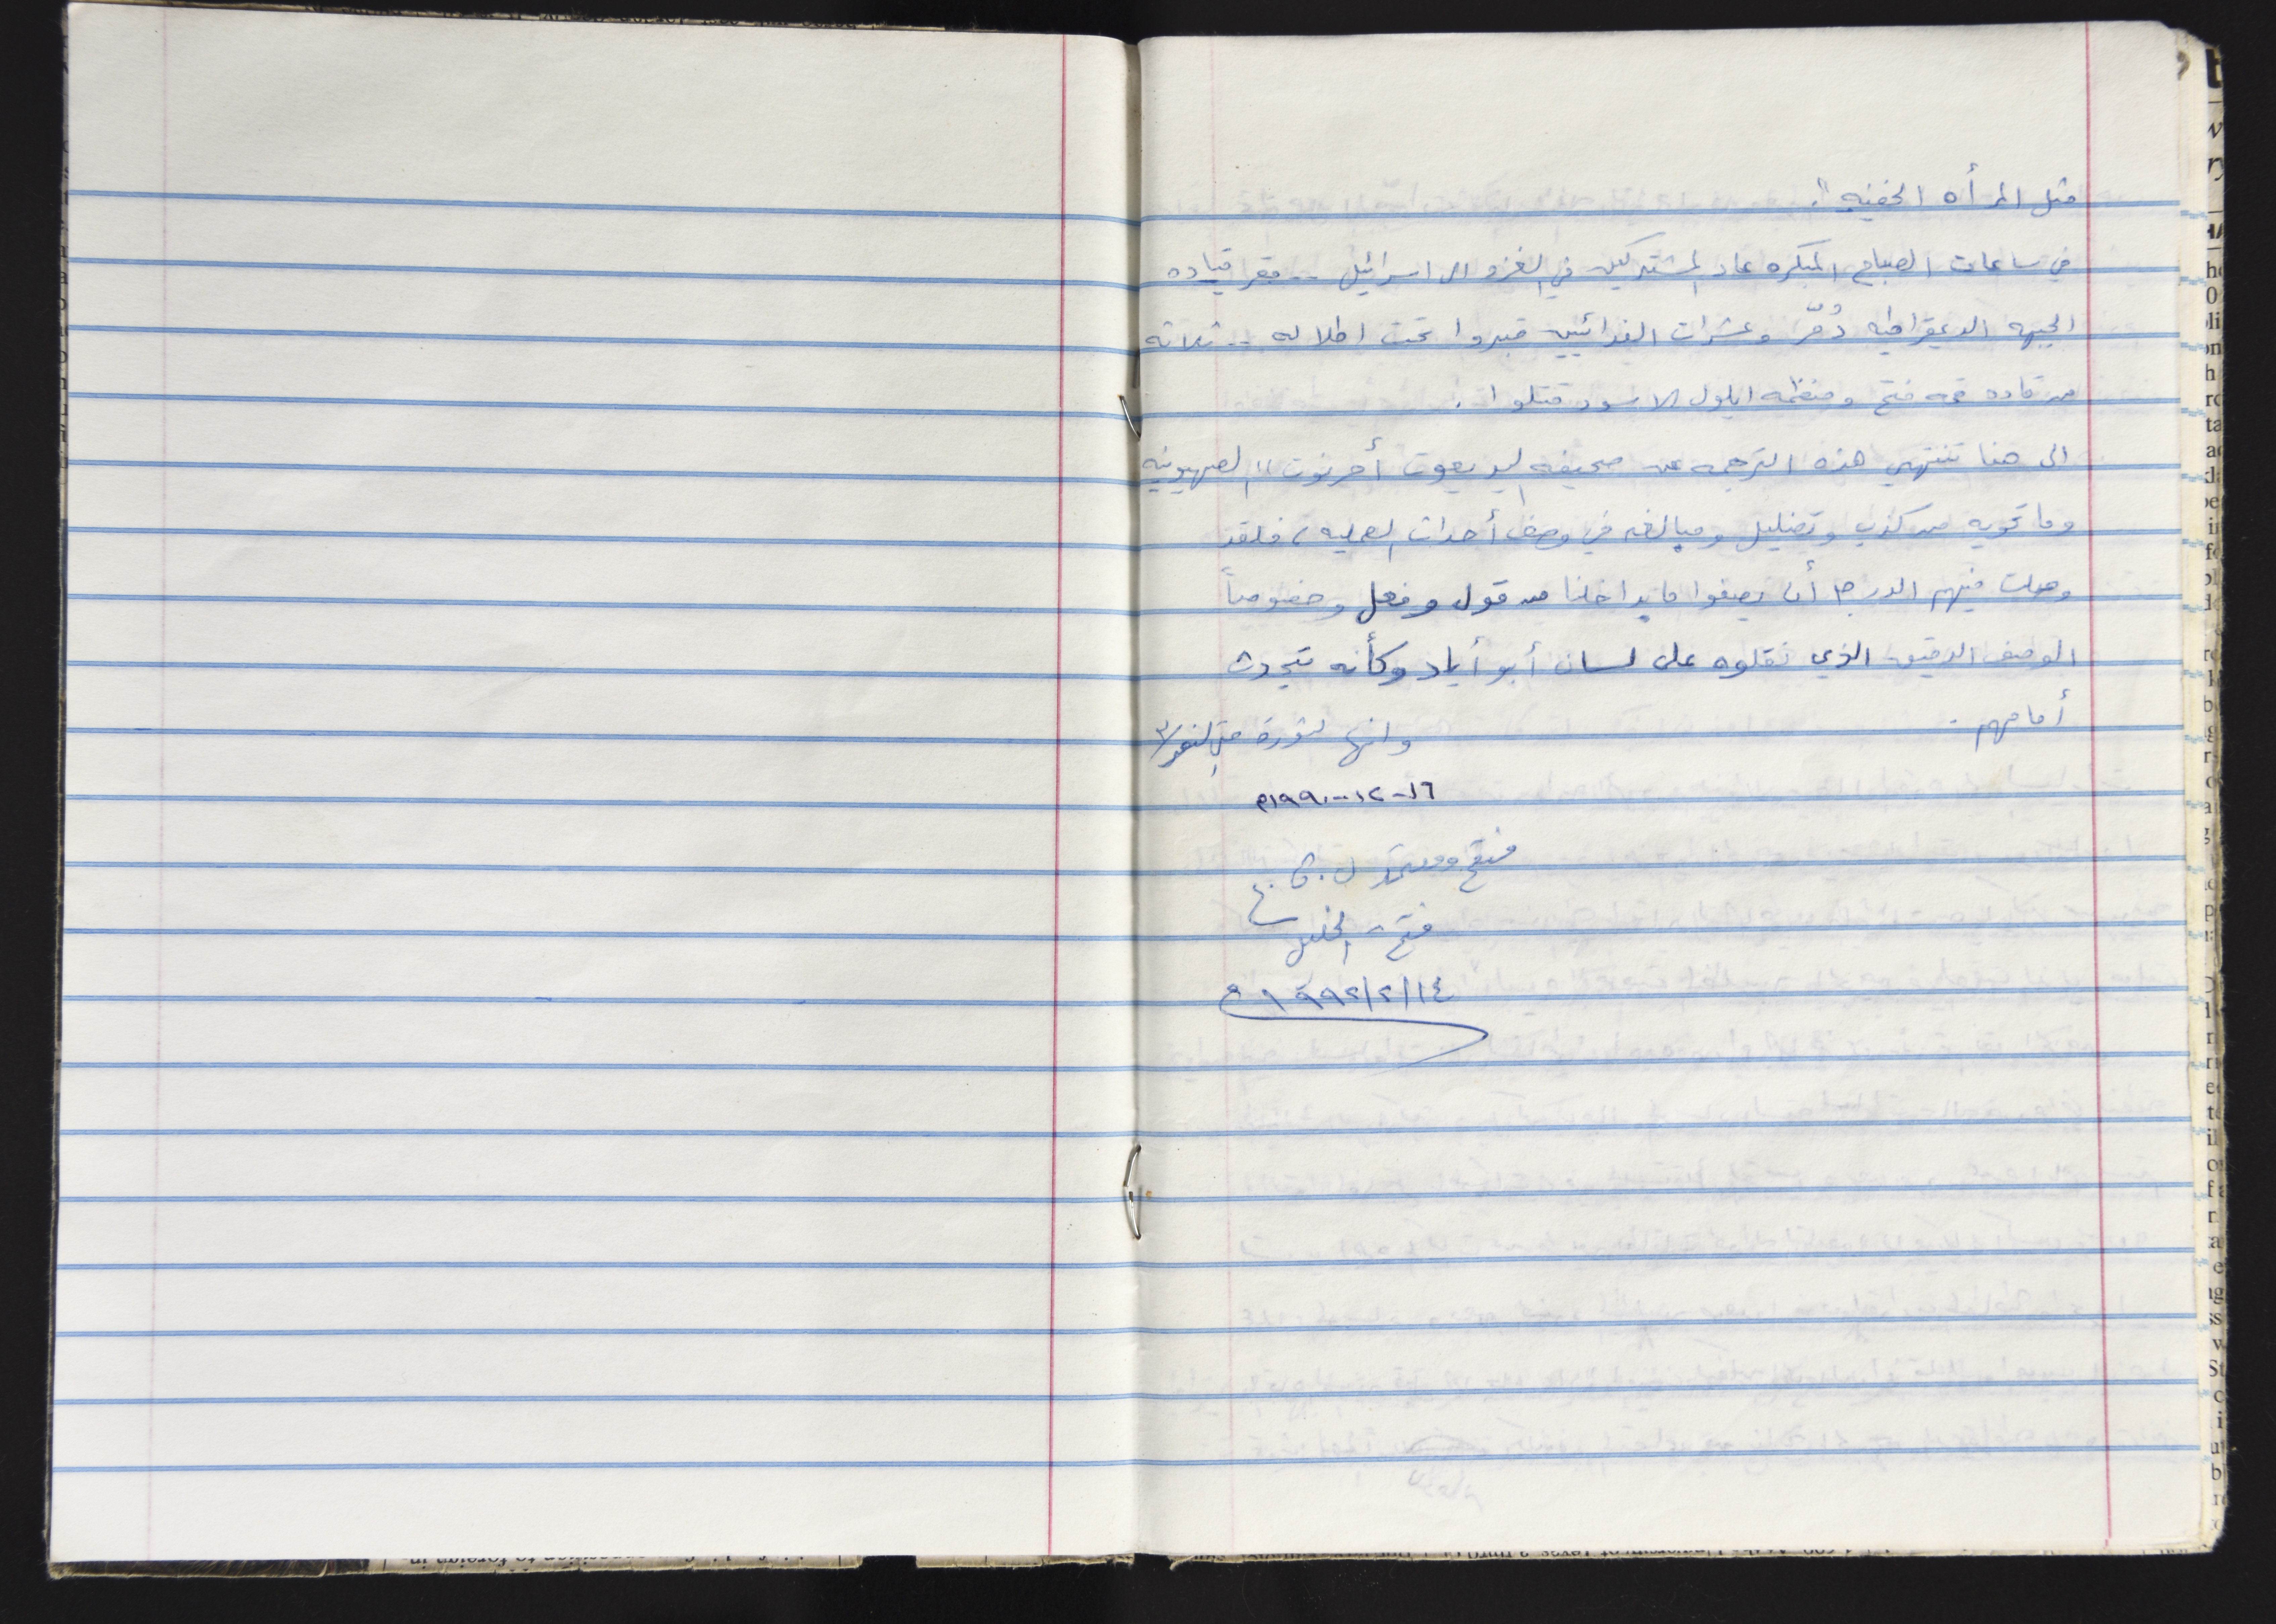 مثل المرأه الخفيه".
في ساعات الصباح المبكره عاد المشتركين في الغزو الى اسرائيل -- مقر قياده
الجبهه الديمقراطيه دُمّر وعشرات الفدائيين قبروا تحت اطلاله -- ثلاثه
من قاده قمه فتح ومنظمه ايلول الاسود قتلوا.
الى هنا تنتهي هذه الترجمه عن صحيفه يديعوت أحرنوت" الصهيونيه
وما تحويه من كذب وتضليل ومبالغه في وصف أحداث العمليه، فلقد
وصلت فيهم الدرجه أن يصفوا ما بداخلنا من قول وفعل وخصوصاً
الوصف الدقيق الذي نقلوه على لسان أبو أياد وكأنه يتحدث
أمامهم.
وانها لثورة حتى النصر
١٦-١٢-١٩٩٠م
فتح
فتح - الخليل
١٤/٢/١٩٩٢م